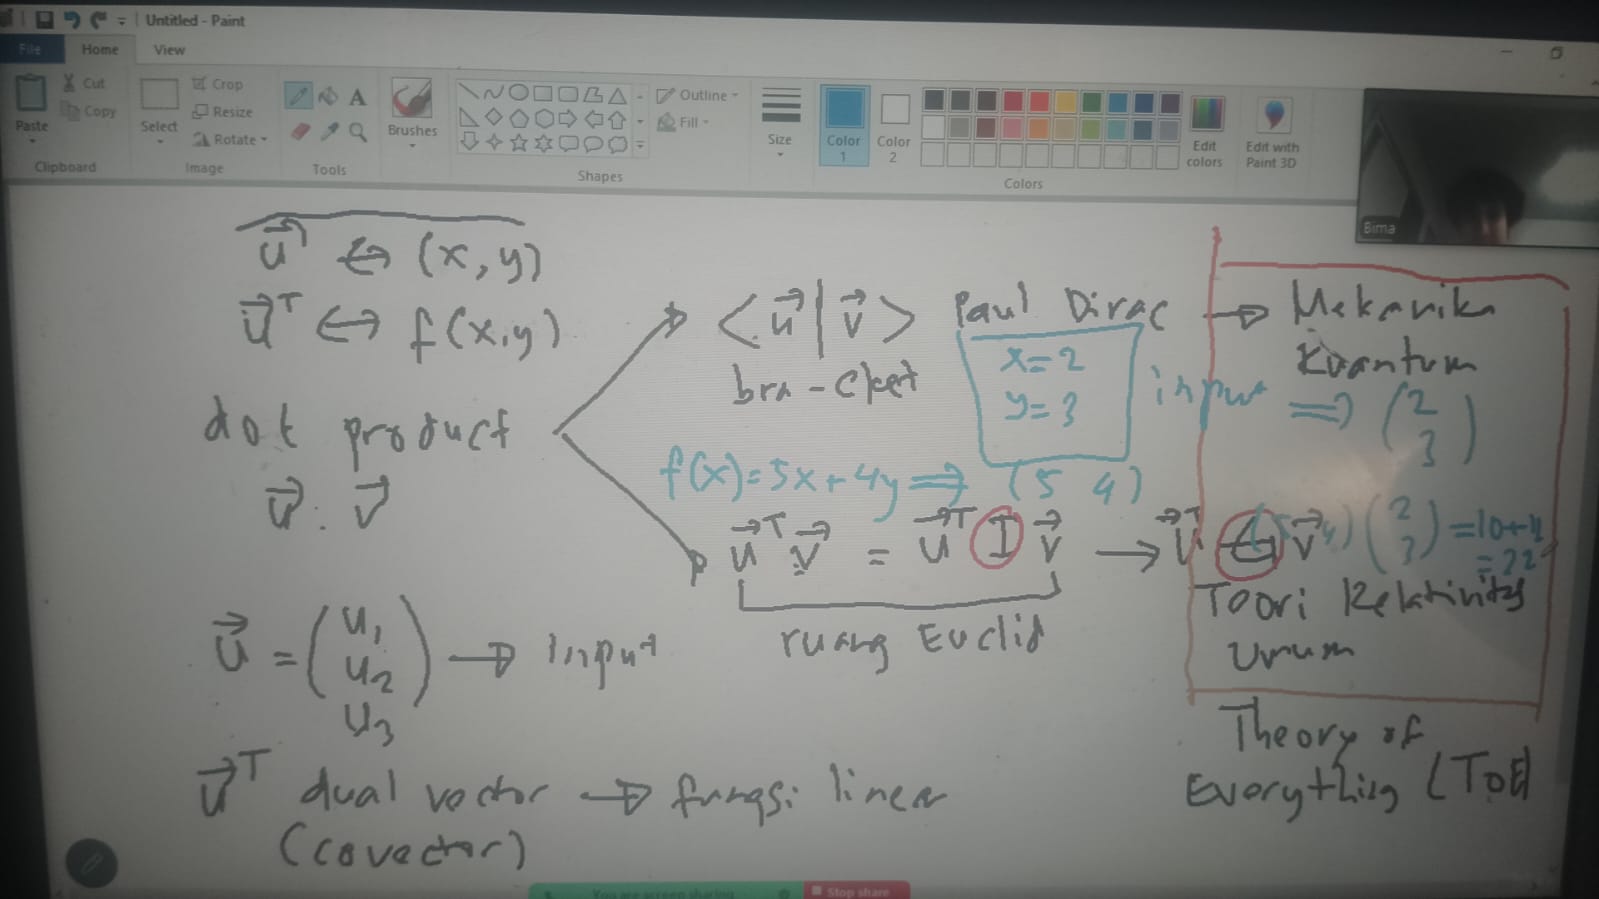 Untitled - Paint
File Home View
Paste
Cut
Copy
Clipboard
Select
Crop
Resize
Rotate
Image
A
Tools
Brushes
Shapes
Outline
Fill
Size
Color 1
Color 2
Colors
Edit colors
Edit with Paint 3D
Bima
u⃗ ↔ (x, y)
u⃗ᵀ ↔ f(x,y)
dot product
u⃗ . v⃗
<u⃗|v⃗> Paul Dirac → Mekanika
Kuantum
bra-cket
x=2
y=3
input ⇒ (2 3)
f(x)=5x+4y ⇒ (5 4)
u⃗ᵀ v⃗ = u⃗ᵀ I v⃗ → u⃗ᵀ G v⃗
(5 4) (2 3) =10+12
=22
ruang Euclid
Teori Relativitas
Umum
u⃗ = (u₁ u₂ u₃) → input
Theory of
Everything (ToE)
u⃗ᵀ dual vector → fungsi linear
(covector)
You are screen sharing
Stop share